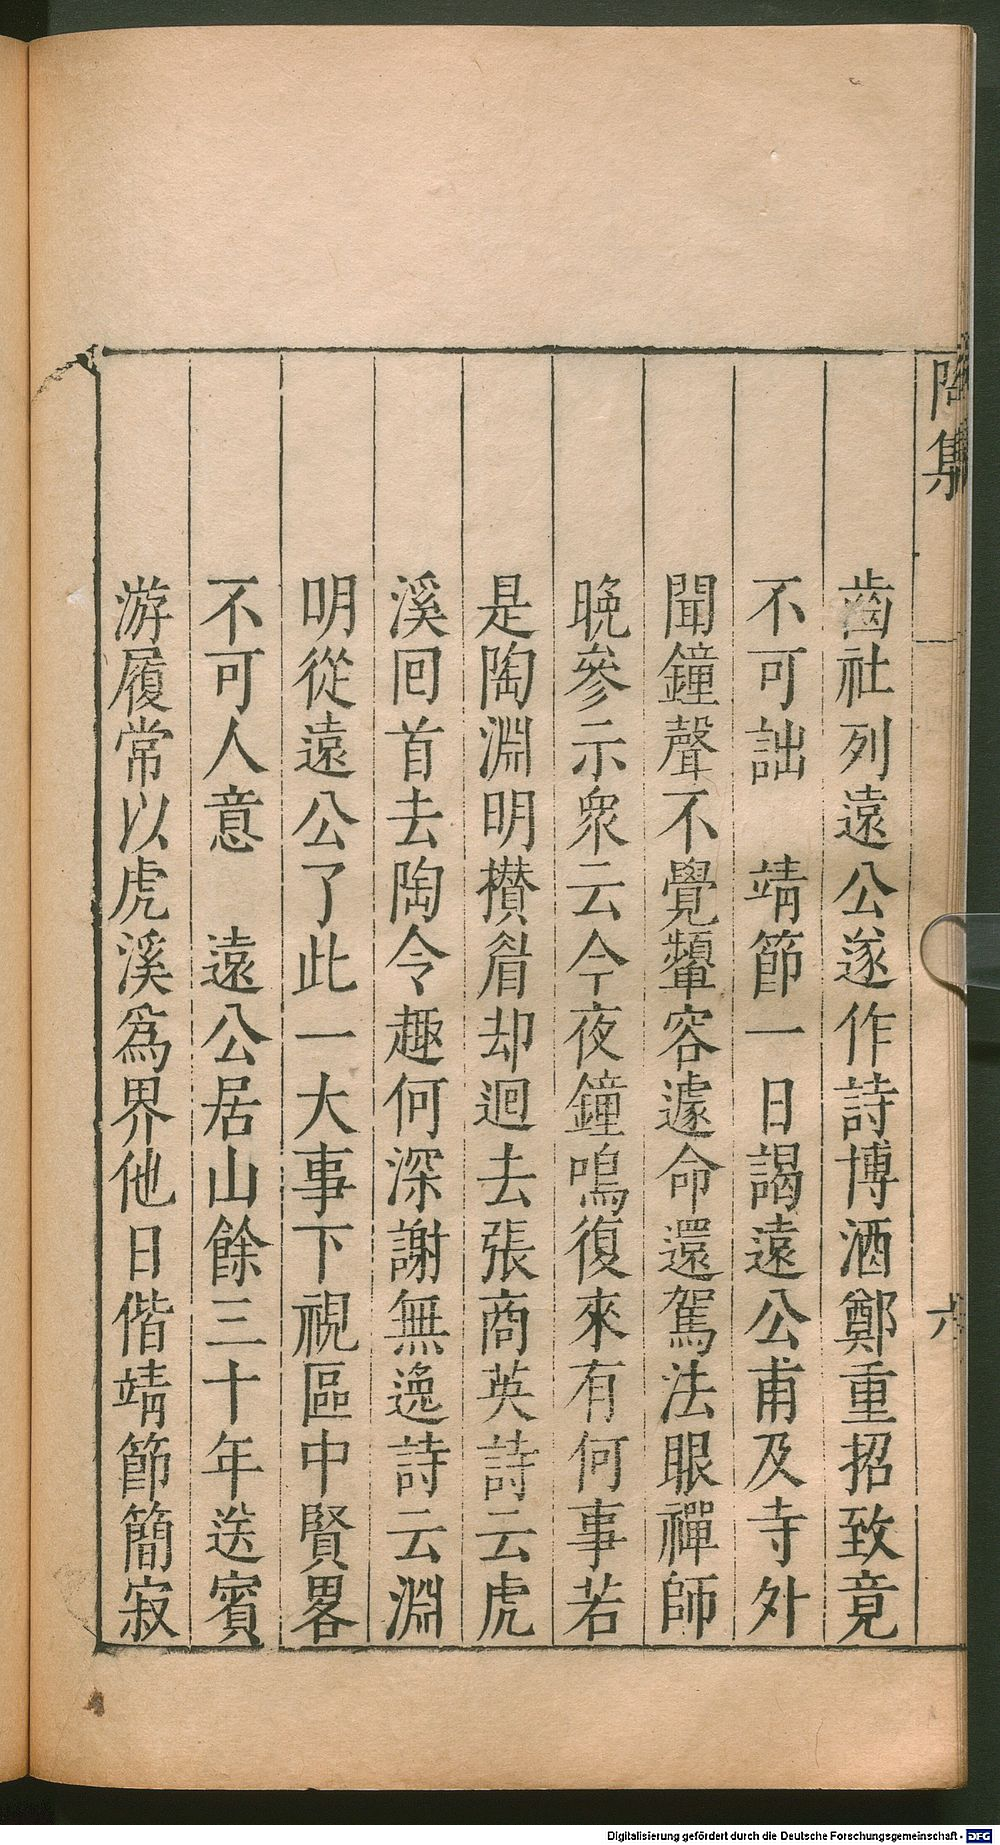 陶集
六
齒社列遠公遂作詩博酒鄭重招致竟
不可詘　靖節一日謁遠公甫及寺外
聞鐘聲不覺顰容遽命還駕法眼禪師
晚參示衆云今夜鐘鳴復來有何事若
是陶淵明攅眉却迴去張商英詩云虎
溪回首去陶令趣何深謝無逸詩云淵
明從遠公了此一大事下視區中賢畧
不可人意　遠公居山餘三十年送賓
游履常以虎溪爲界他日偕靖節簡寂
Digitalisierung gefördert durch die Deutsche Forschungsgemeinschaft - DFG